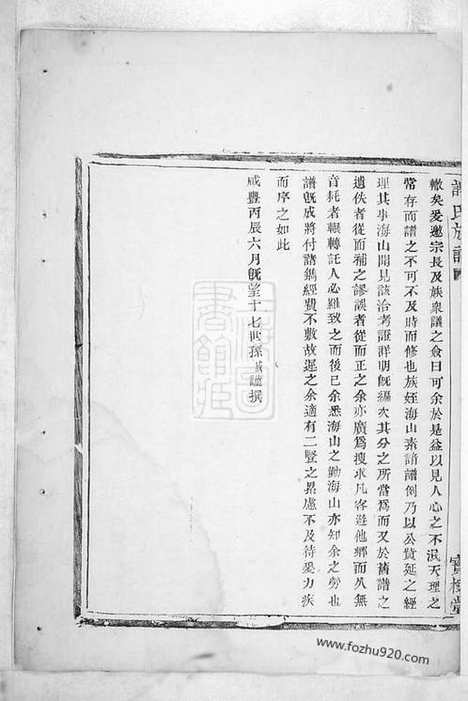 氏族譜
轍矣爰邀宗長及族衆議之僉曰可余於是益以見人心之不泯天理之
常存而譜之不可不及時而修也族姪海山素諳譜例乃以公貲延之經
理其事海山聞見該洽考證詳明旣編次其分之所當爲而又於舊譜之
遺佚者從而補之謬誤者從而正之余亦廣爲搜求凡客遊他鄉而久無
音耗者輾轉託人必羅致之而後已余悉海山之勤海山亦知余之勞也
譜旣成將付諸鐫經費不敷故遲之余適有二豎之累慮不及待爰力疾
而序之如此
咸豐丙辰六月旣望十七世孫 謹撰
寶樹堂
www.fozhu920.com